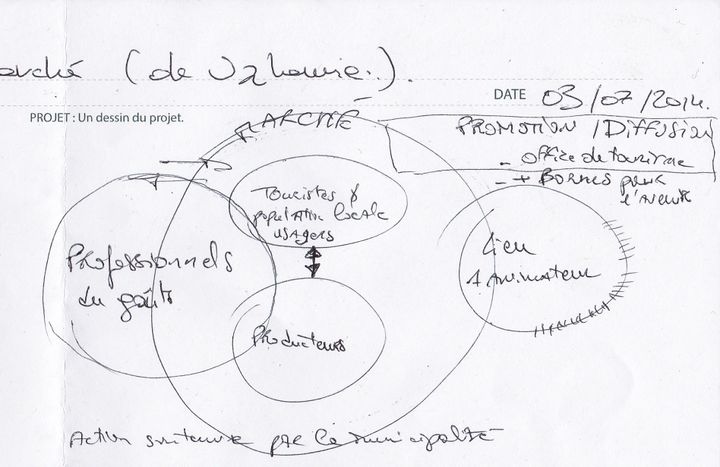 (de
DATE 03/07/2014.
PROJET : Un dessin du projet.
MARCHÉ
PROMOTION / DIFFUSION
- Office de tourisme
- + BORNES pour
l'avenir
Touristes &
population locale
usagers
Professionnels
du goût
Lieu
1 Animateur
Producteurs
Action soutenue par la municipalité